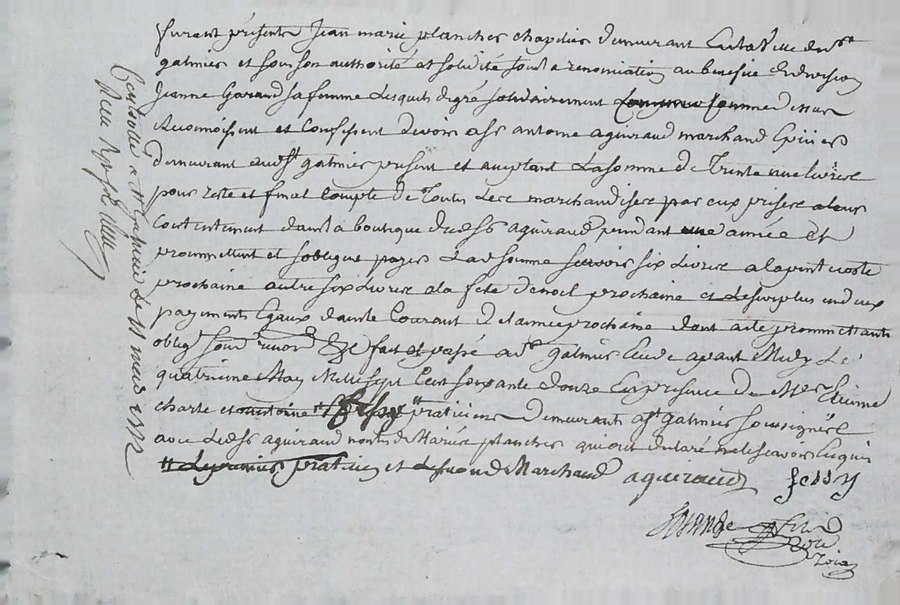 furent présents Jean marie planches chapelier demeurant en la Ville de St
galmier et sous son authorité et solidité sous la renonciation au benefice de division
Jeanne Garaud sa femme Lesquels de gré solidairement
Reconnoissent et Confessent devoir a Sr antoine aguiraud marchand Epicier
demeurant aud St galmier present et acceptant La somme de Trente neuf livres
pour reste et final Compte de Toutes Les marchandises par eux prises a leur
Contentement dans la boutique dud Sr aguiraud pendant une année et
promettent et sobligent payer Lad somme scavoir six Livres a la pentecoste
prochaine autre six Livres a la fete de noel prochaine et Le surplus en deux
payements Egaux dans le Courant de Lannée prochaine dont acte promettants
oblig soum renon &c fait et passé a St galmier Etude avant Midy Le
quatrieme May Mille sept Cent soixante douze En presence de Me Etienne
charle et antoine praticiens demeurants a St galmier soussignés
avec Led Sr aguiraud non led Marie planches qui ont declaré ne le scavoir Enquis
Le premier praticien et Le second Marchand aguiraud fessy
Controllé a St galmier Le 11 mai 1772
Reçu